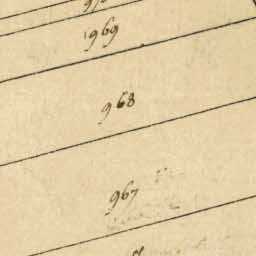 969
968
967